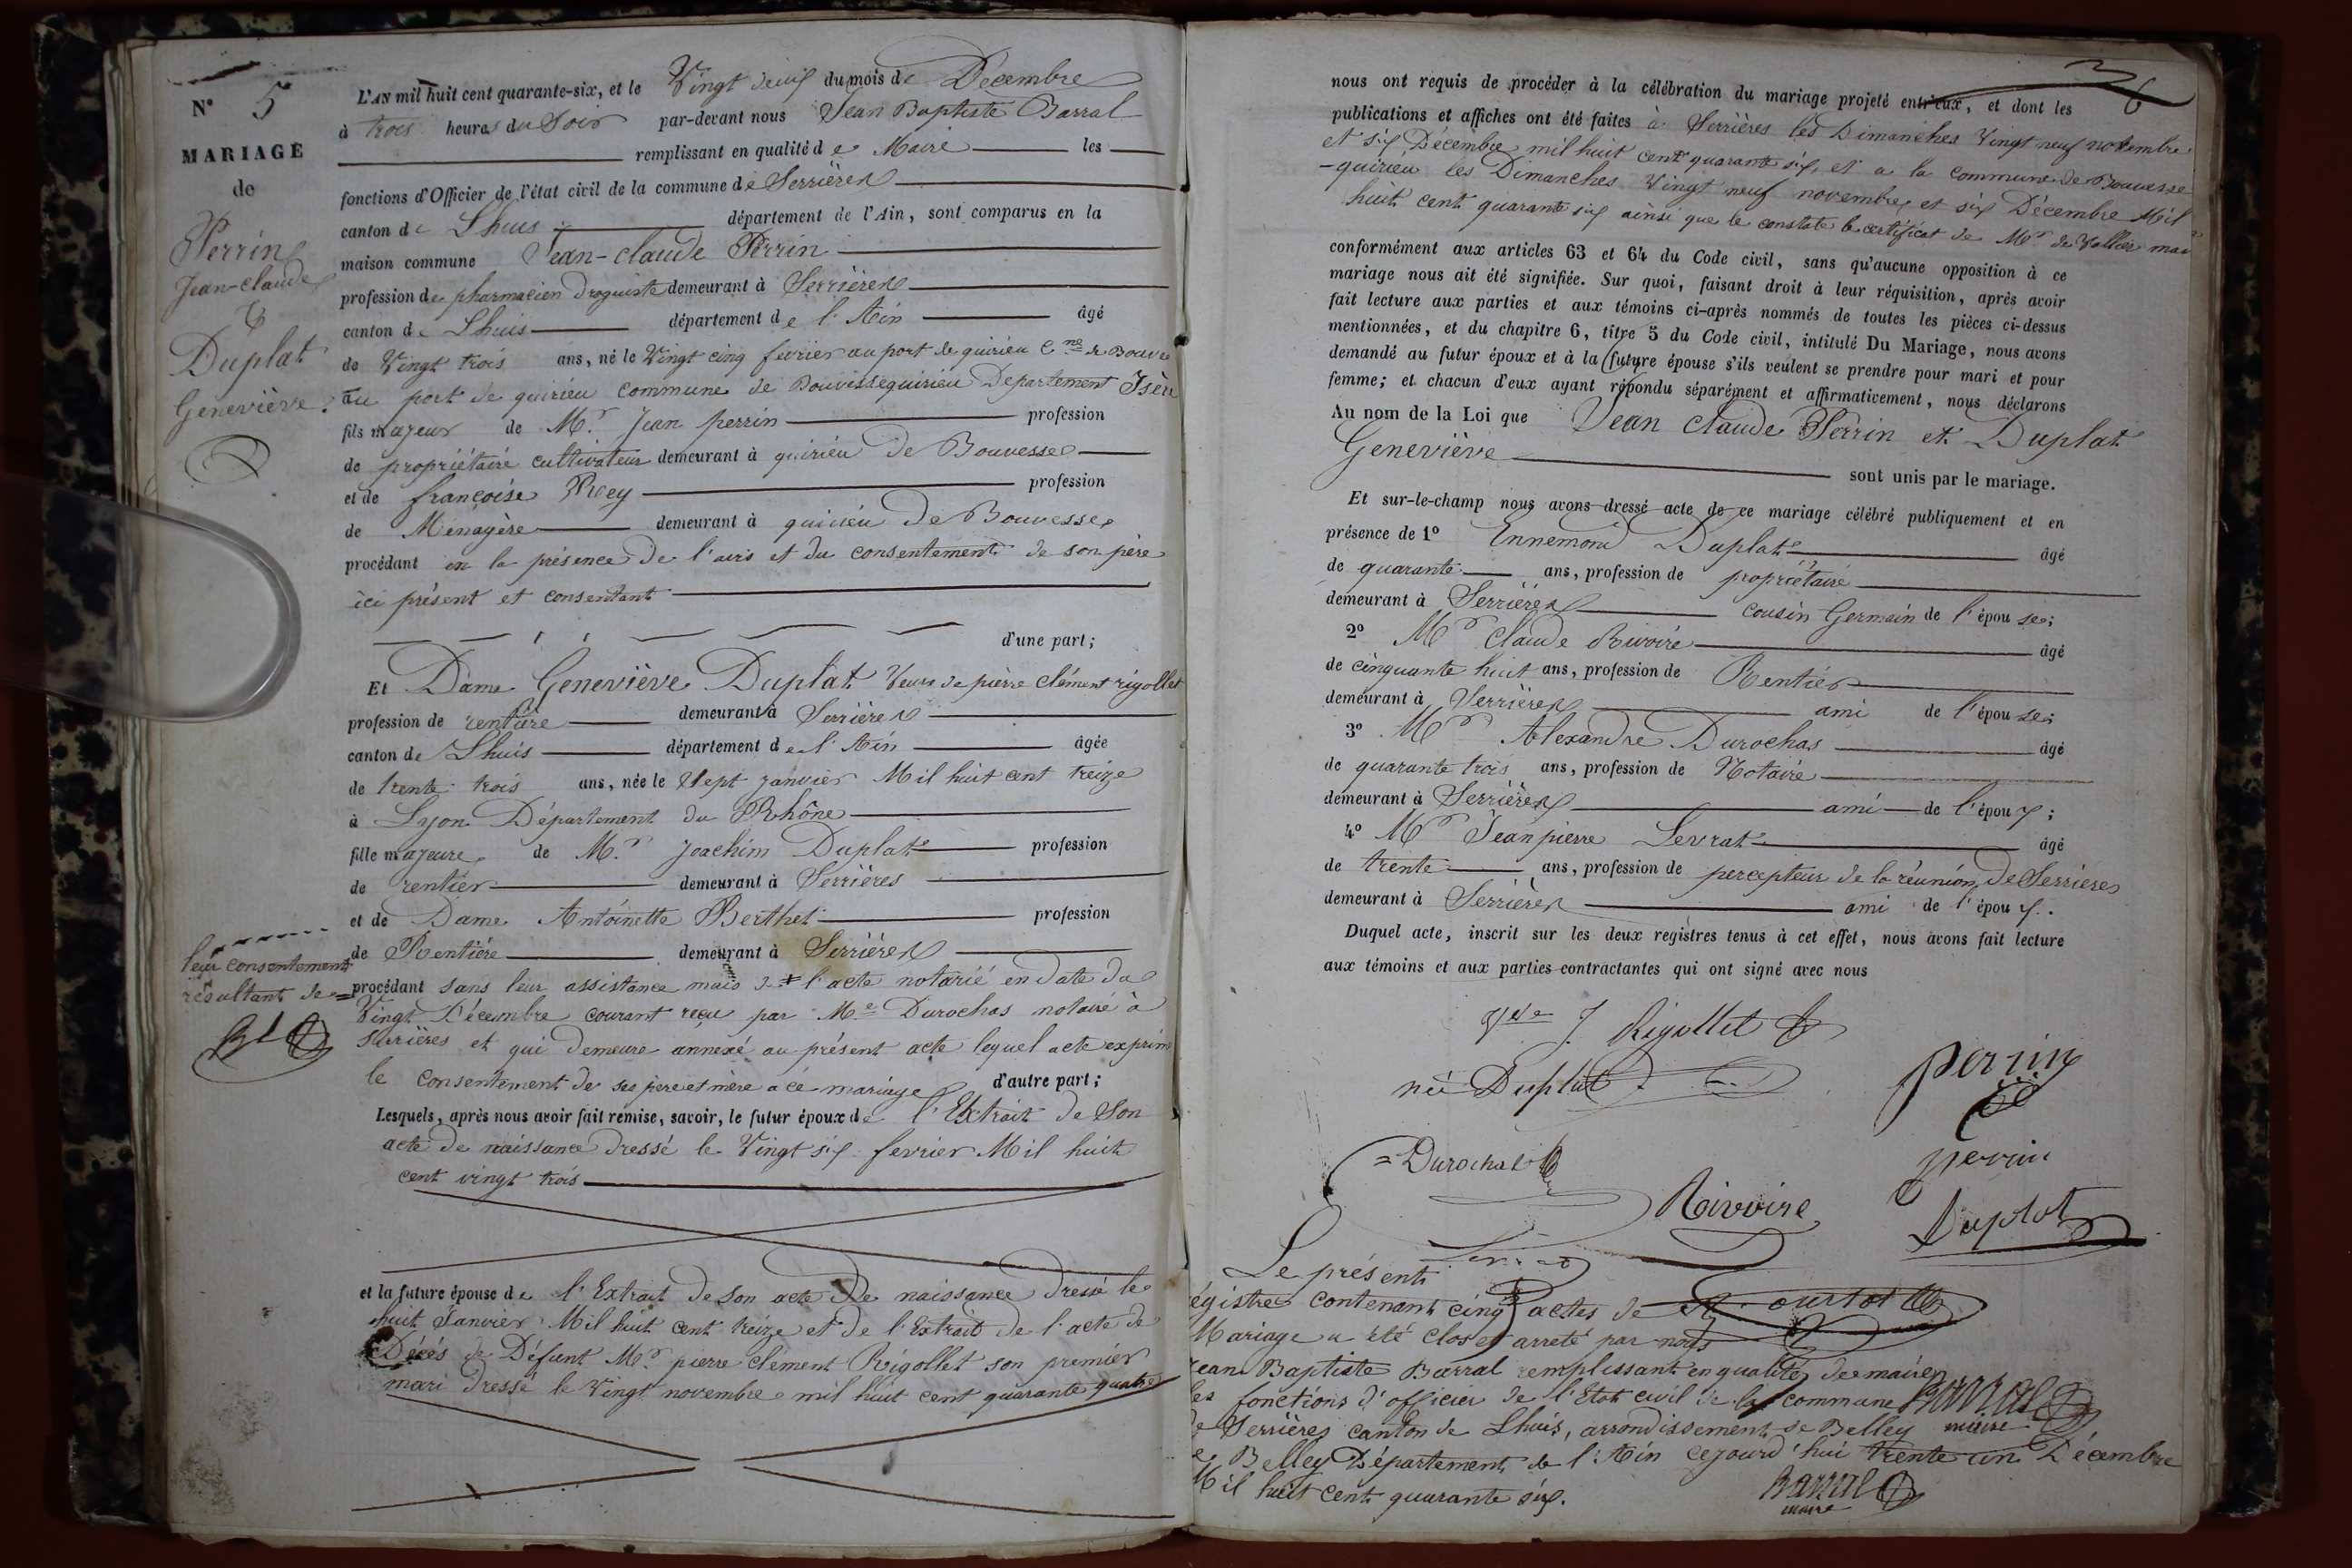 N° 5
MARIAGE
de
Perrin
Jean-claude
&
Duplat
Geneviève.
L'AN mil huit cent quarante-six, et le Vingt deux du mois de Décembre
à trois heures du Soir par-devant nous Jean Baptiste Barral
remplissant en qualité de Maire les
fonctions d'Officier de l'état civil de la commune de Serrières
canton de Lhuis département de l'Ain, sont comparus en la
maison commune Jean-claude Perrin
profession de pharmacien Droguiste demeurant à Serrières
canton de Lhuis département de l'Ain âgé
de Vingt trois ans, né le Vingt cinq fevrier au port de quirieu Cne de Bouve
au port de quirieu commune de Bouvessequirieu Departement Isère
fils majeur de Mr. Jean perrin profession
de propriétaire cultivateur demeurant à quirieu De Bouvesse
et de françoise Rey profession
de Menagère demeurant à quirieu De Bouvesse
procédant en la présence de l'avis et du consentement de son père
ici présent et consentant
d'une part;
Et Dame Geneviève Duplat Veuve de pierre clément rigollet
profession de rentière demeurant à Serrières
canton de Lhuis département de l'Ain âgée
de trente trois ans, née le Sept janvier Mil huit cent treize
à Lyon Département du Rhône
fille majeure de Mr. Joachim Duplat profession
de rentier demeurant à Serrières
et de Dame Antoinette Berthet profession
de Rentière demeurant à Serrières
leur consentement
résultant de
procédant sans leur assistance mais de l'acte notarié en date du
Vingt Décembre courant reçu par Me Durochas notaire à
Serrières et qui demeure annexé au présent acte lequel acte exprime
le consentement de ses pere et mère a ce mariage d'autre part;
Lesquels, après nous avoir fait remise, savoir, le futur époux de l'Extrait de Son
acte de naissance dressé le Vingt six fevrier Mil huit
cent vingt trois
et la future épouse de l'Extrait de son acte De naissance Dressé le
huit Janvier Mil huit cent treize et de l'Extrait de l'acte de
Décés de Défunt Mr. pierre clément Rigollet son premier
mari dressé le Vingt novembre mil huit cent quarante quatre
6
nous ont requis de procéder à la célébration du mariage projeté entr'eux, et dont les
publications et affiches ont été faites à Serrières les Dimanches Vingt neuf novembre
et six Décembre mil huit cent quarante six, et a la commune de Bouvesse
-quirieu les Dimanches Vingt neuf novembre et six Décembre Mil
huit cent quarante six ainsi que le constate le certificat de Mr. de Vallier mai
conformément aux articles 63 et 64 du Code civil, sans qu'aucune opposition à ce
mariage nous ait été signifiée. Sur quoi, faisant droit à leur réquisition, après avoir
fait lecture aux parties et aux témoins ci-après nommés de toutes les pièces ci-dessus
mentionnées, et du chapitre 6, titre 5 du Code civil, intitulé Du Mariage, nous avons
demandé au futur époux et à la future épouse s'ils veulent se prendre pour mari et pour
femme; et chacun d'eux ayant répondu séparément et affirmativement, nous déclarons
Au nom de la Loi que Jean claude Perrin et Duplat
Geneviève sont unis par le mariage.
Et sur-le-champ nous avons dressé acte de ce mariage célébré publiquement et en
présence de 1° Ennemond Duplat âgé
de quarante ans, profession de propriétaire
demeurant à Serrières cousin Germain de l'épouse;
2° Mr claude Rivoire âgé
de cinquante huit ans, profession de Rentier
demeurant à Serrières ami de l'épouse;
3° Mr Alexandre Durochas âgé
de quarante trois ans, profession de Notaire
demeurant à Serrières ami de l'époux;
4° Mr Jean pierre Levrat âgé
de trente ans, profession de percepteur de la réunion De Serrières
demeurant à Serrières ami de l'époux.
Duquel acte, inscrit sur les deux registres tenus à cet effet, nous avons fait lecture
aux témoins et aux parties contractantes qui ont signé avec nous
Rigollet
née Duplat
Perrin
Durochas
perrin
Rivoire
Duplat
Le présent
régistre contenant cinq actes de
Mariage a été clos et arreté par nous
Jean Baptiste Barral remplissant en qualité de maire
les fonctions d'officier de l'Etat civil de la commune Barral
de Serrières canton de Lhuis, arrondissement de Belley maire
Belley Département de l'Ain cejourd'hui trente un Décembre
Mil huit cent quarante six.
Barral
maire